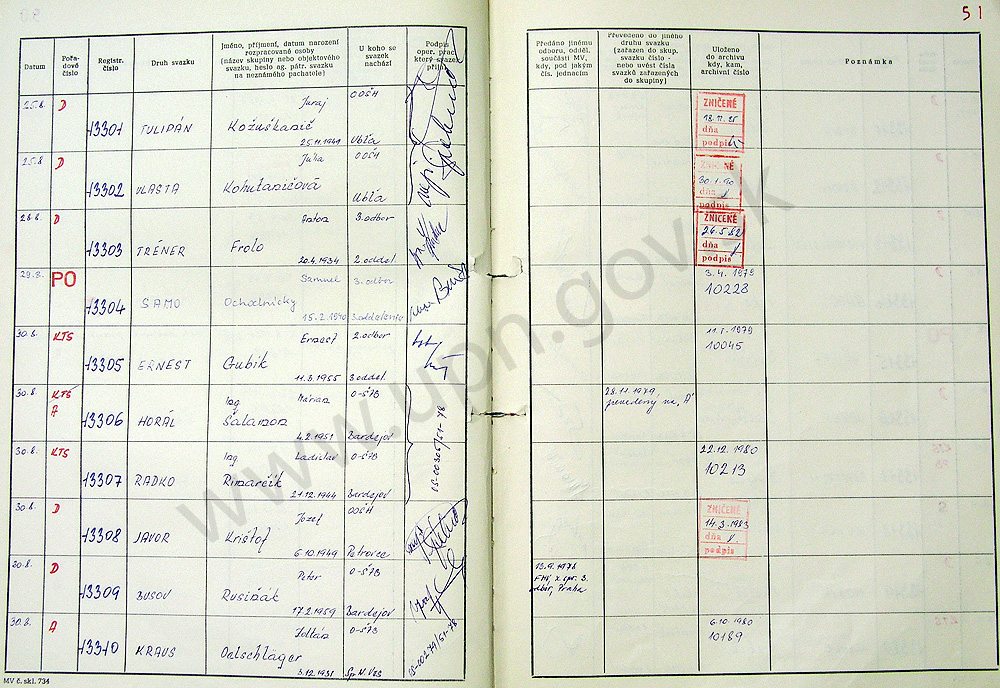 51
Datum
Pořa-
dové
číslo
Registr.
číslo
Druh svazku
Jméno, příjmení, datum narození
rozpracované osoby
(název skupiny nebo objektového
svazku, heslo ag. pátr. svazku
na neznámého pachatele)
U koho se
svazek
nachází
Podpis
oper. prac.
který svazek
Předáno jinému
odboru, odděl.
součásti MV,
kdy, pod jakým
čís. jednacím
Převedeno do jiného
druhu svazku
(zařazen do skup.
svazku číslo -
nebo uvést čísla
svazků zařazených
do skupiny)
Uloženo
do archivu
kdy, kam,
archivní číslo
Poznámka
25.8. D 13301 TULIPÁN
Juraj
Kožuškanič
25.11.1949
OOŠH
Ubľa
ZNIČENÉ
dňa
podpis
25.8 D 13302 VLASTA
Júlia
Kohutaničová
OOŠH
Ubľa
ZNIČENÉ
30.1.90
dňa
podpis
28.8. D 13303 TRÉNER
Anton
Frolo
20.4.1934
3.odbor
2.oddel.
ZNIČENÉ
26.5.82
dňa
podpis
29.8. PO 13304 SAMO
Samuel
Ochodnický
15.2.1940
3.odbor
3.oddelenie
3.4.1979
10228
30.8. KTS 13305 ERNEST
Ernest
Gubik
11.3.1955
2.odbor
3.oddel.
11.5.1979
10045
30.8. KTS
A
13306 HORÁL
Ing Marian
Šalamon
4.2.1951
O-ŠTB
Bardejov
28.11.1979
prevedený na „A"
30.8. KTS 13307 RADKO
Ing Ladislav
Rimarčík
21.12.1944
O-ŠTB
Bardejov
22.12.1980
10213
30.8. D 13308 JAVOR
Jozef
Krištof
6.10.1949
OOŠH
Petrovce
ZNIČENÉ
14.3.1983
dňa
podpis
30.8. D 13309 BUSOV
Peter
Rusiňák
17.2.1959
O-ŠTB
Bardejov
13.9.1978
FMV, X. spr. 3.
odbor, Praha
30.8. A 13310 KRAUS
Zoltán
Oelschläger
3.12.1931
O-ŠTB
Sp. N. Ves
6.10.1980
10189
MV č. skl. 734
www.upn.gov.sk